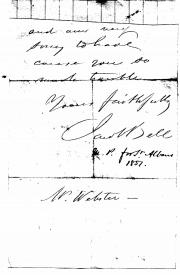 and am very
sorry to have
cause you so
much trouble
Yours faithfully
Jacob Bell
M. P. for St. Albans
1851.
Mr. Webster —